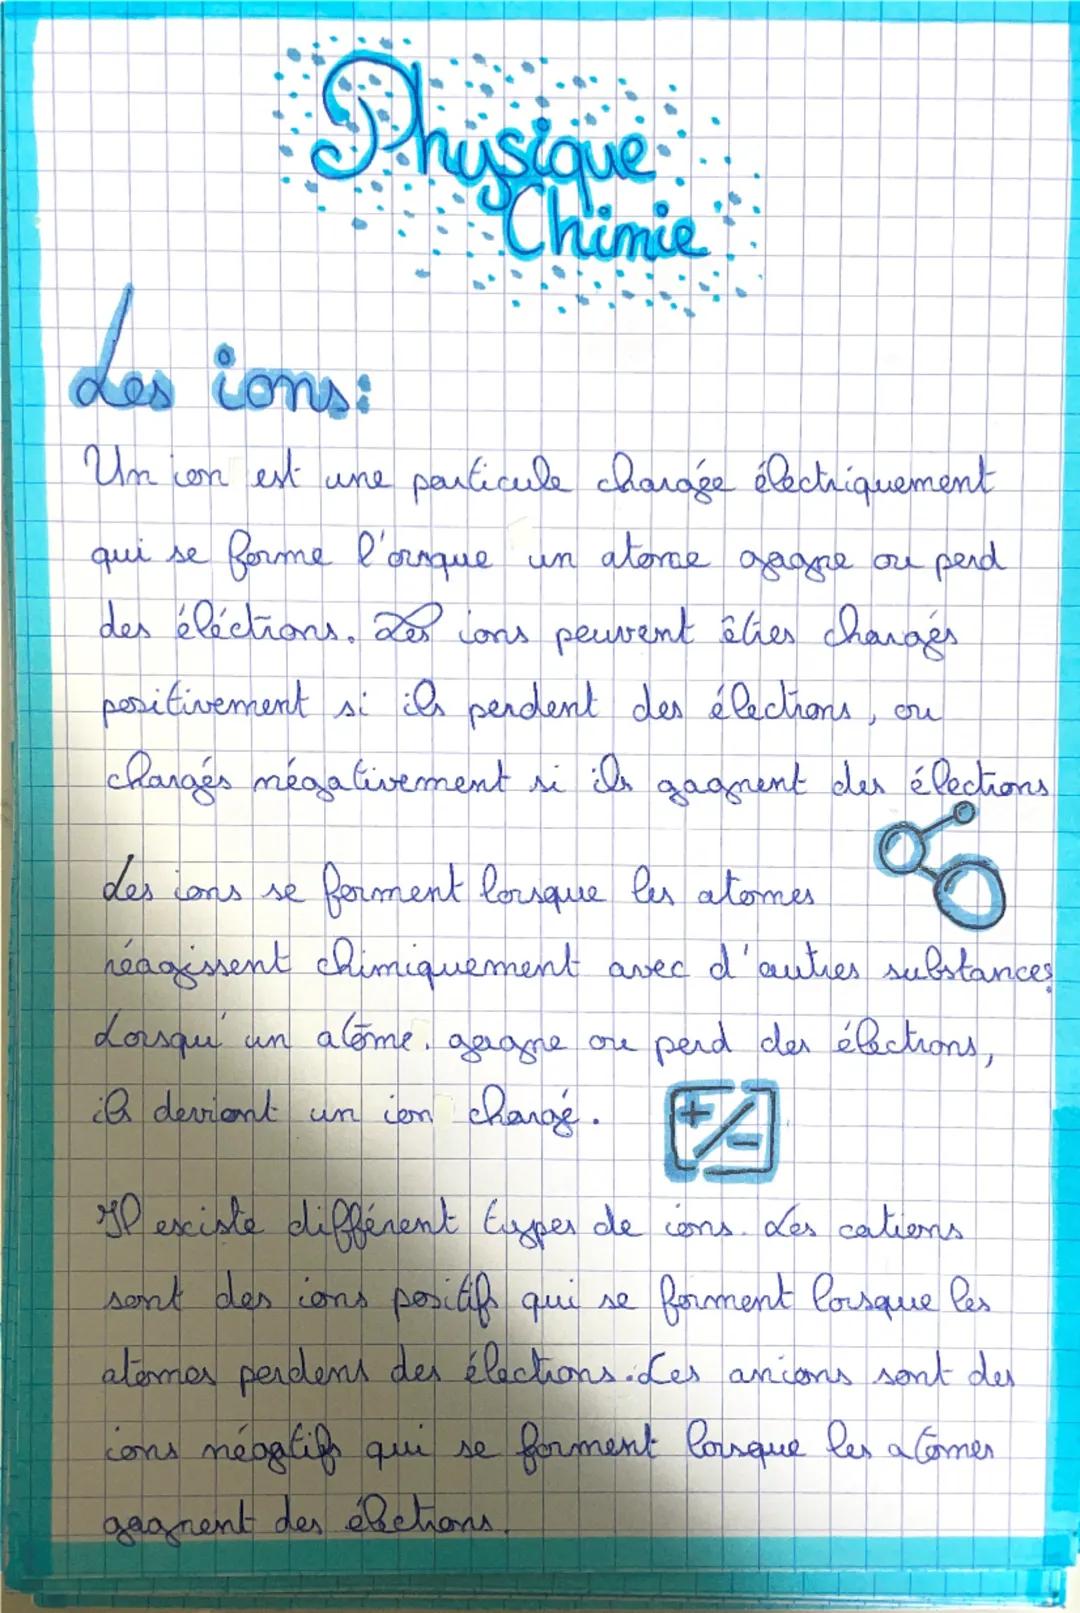 Physique
Chimie
Les ions:
Un ion est une particule chargée électriquement
qui se forme l'orsque un atome gagne ou perd
des éléctrons. Les ions peuvent êtres chargés
positivement si ils perdent des électrons, ou
chargés négativement si ils gagnent des électrons
Les ions se forment lorsque les atomes
réagissent chimiquement avec d'autres substances
Lorsqu'un atôme. gagne ou perd des électrons,
il deviont un ion chargé.
+/-
Il existe différent types de ions. Les cations
sont des ions positifs qui se forment lorsque les
atomes perdens des électrons. Les anions sont des
ions négatifs qui se forment lorsque les atomes
gagnent des électrons.